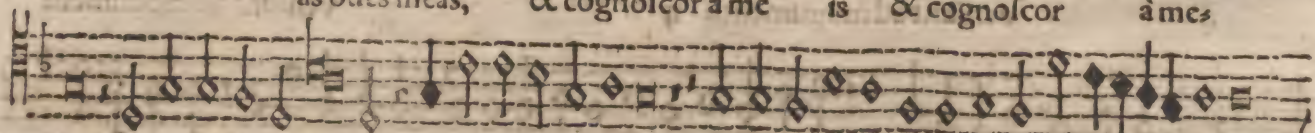 as oues meas, & cognoſcor à me is & cognoſcor à me⸗